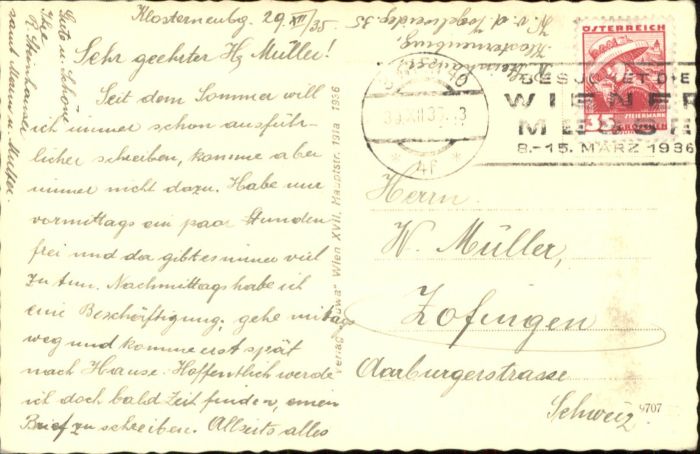 Klosterneubg. 29.XII/35
Sehr geehrter H. Müller!
Seit dem Sommer will
ich immer schon ausführ-
licher schreiben, komme aber
immer nicht dazu. Habe nur
vormittags ein paar Stunden
frei und da gibt es immer viel
zu tun. Nachmittags habe ich
eine Beschäftigung, gehe mittags
weg und komme erst spät
nach Hause. Hoffentlich werde
ich doch bald Zeit finden, einen
Brief zu schreiben. Allseits alles
Gute u. Schöne
Ihr
R. Steinhauser
samt Mann u. Mutter.
Steinhauser
Klosterneuburg,
W. v. d. Vogelweideg. 35
Verlag "Iowa" Wien XVII. Hauptstr. 191a 1936
ÖSTERREICH
STEIERMARK
35 GROSCHEN
BESUCHET DIE
WIENER
MESSE
8.-15. MÄRZ 1936
XII.35
* 4f *
Herrn
W. Müller,
Zofingen
Aarburgerstrasse
Schweiz
9707